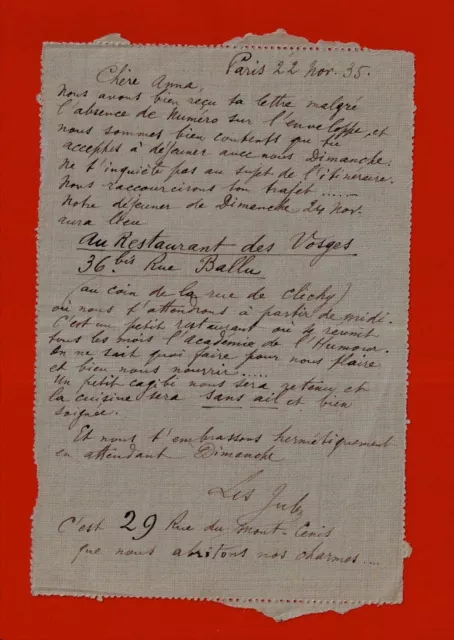 Paris 22 Nov. 35.
Chère Anna,
Nous avons bien reçu ta lettre malgré
l'absence de Numéro sur l'enveloppe, et
nous sommes bien contents que tu
acceptes à déjeuner avec nous Dimanche.
Ne t'inquiète pas au sujet de l'itinéraire.
Nous raccourcirons ton trajet .....
Notre déjeuner de Dimanche 24 Nov.
aura lieu
Au Restaurant des Vosges
36 bis Rue Ballu
(au coin de la rue de clichy)
où nous t'attendrons à partir de midi.
C'est un petit restaurant où se réunit
tous les mois l'Académie de l'Humour.
On ne sait quoi faire pour nous plaire
et bien nous nourrir .....
Un petit cagibi nous sera retenu et
la cuisine sera sans ail et bien
soignée.
Et nous t'embrassons hermétiquement
en attendant Dimanche
Les
C'est 29 Rue du Mont-Cenis
que nous abritons nos charmes ....